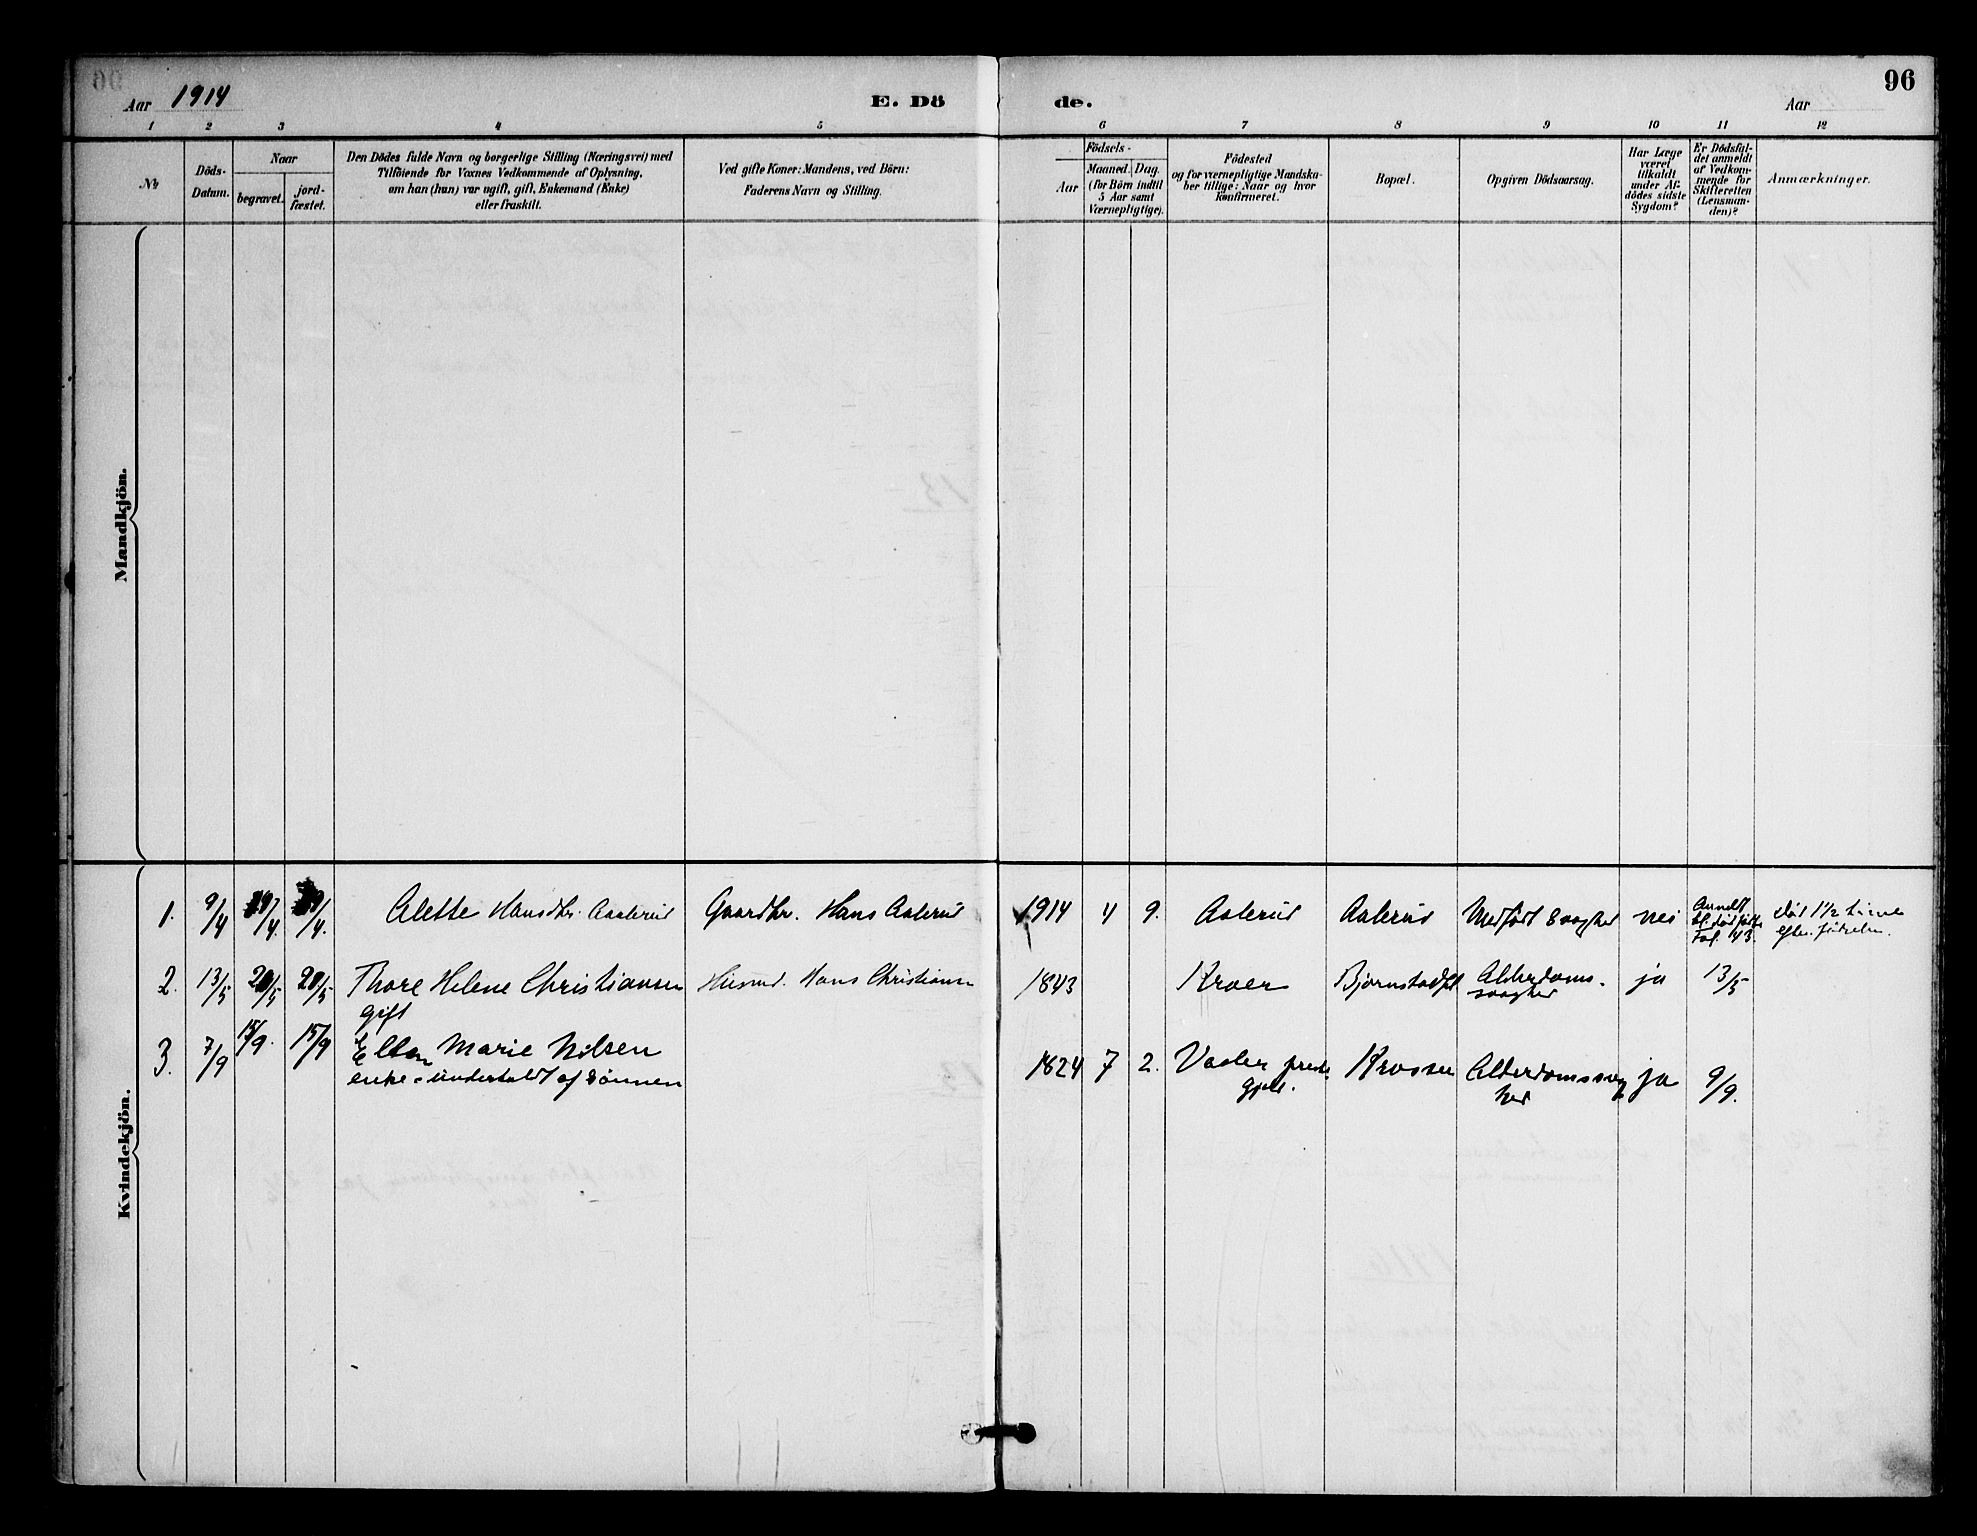 96
Aar 1914
E. Dö
de.
Aar
1 2 3 4 5 6 7 8 9 10 11 12
No
Döds-
Datum.
Naar
begravet.
jord-
fæstet.
Den Dödes fulde Navn og borgerlige Stilling (Næringsvei) med
Tilföiende for Voxnes Vedkommende af Oplysning,
om han (hun) var ugift, gift, Enkemand (Enke)
eller fraskilt.
Ved gifte Koner: Mandens, ved Börn:
Faderens Navn og Stilling.
Födsels-
Aar
Maaned. Dag.
(for Börn indtil
5 Aar samt
Værnepligtige).
Födested
og for værnepligtige Mandska-
ber tillige: Naar og hvor
konfirmeret.
Bopæl.
Opgiven Dödsaarsag.
Har Læge
været
tilkaldt
under Af-
dödes sidste
Sygdom?
Er Dödsfal-
det anmeldt
af Vedkom-
mende for
Skifteretten
(Lensman-
den)?
Anmærkninger.
Mandkjön.
Kvindekjön.
1. 9/4 19/4. 19/4. Alette Hansdtr. Aalerud Gaardbr. Hans Aalerud 1914 4 9. Aalerud Aalerud Medfødt svaghed nei Anmeldt Fol. 143. død 1 1/2 time
efter fødselen.
2. 13/5 20/5 20/5 Thore Helene Christiansen Husmd. Hans Christiansen 1843 Kroer Bjørnstadfet Alderdoms-
svaghed ja 13/5
gift
3. 7/9 15/9. 15/9 Ellen Marie Nilsen 1824 7 2. Vaaler preste-
gjeld. Krossen Alderdomssvag
hed ja 9/9.
enke - underholdt af sønnen